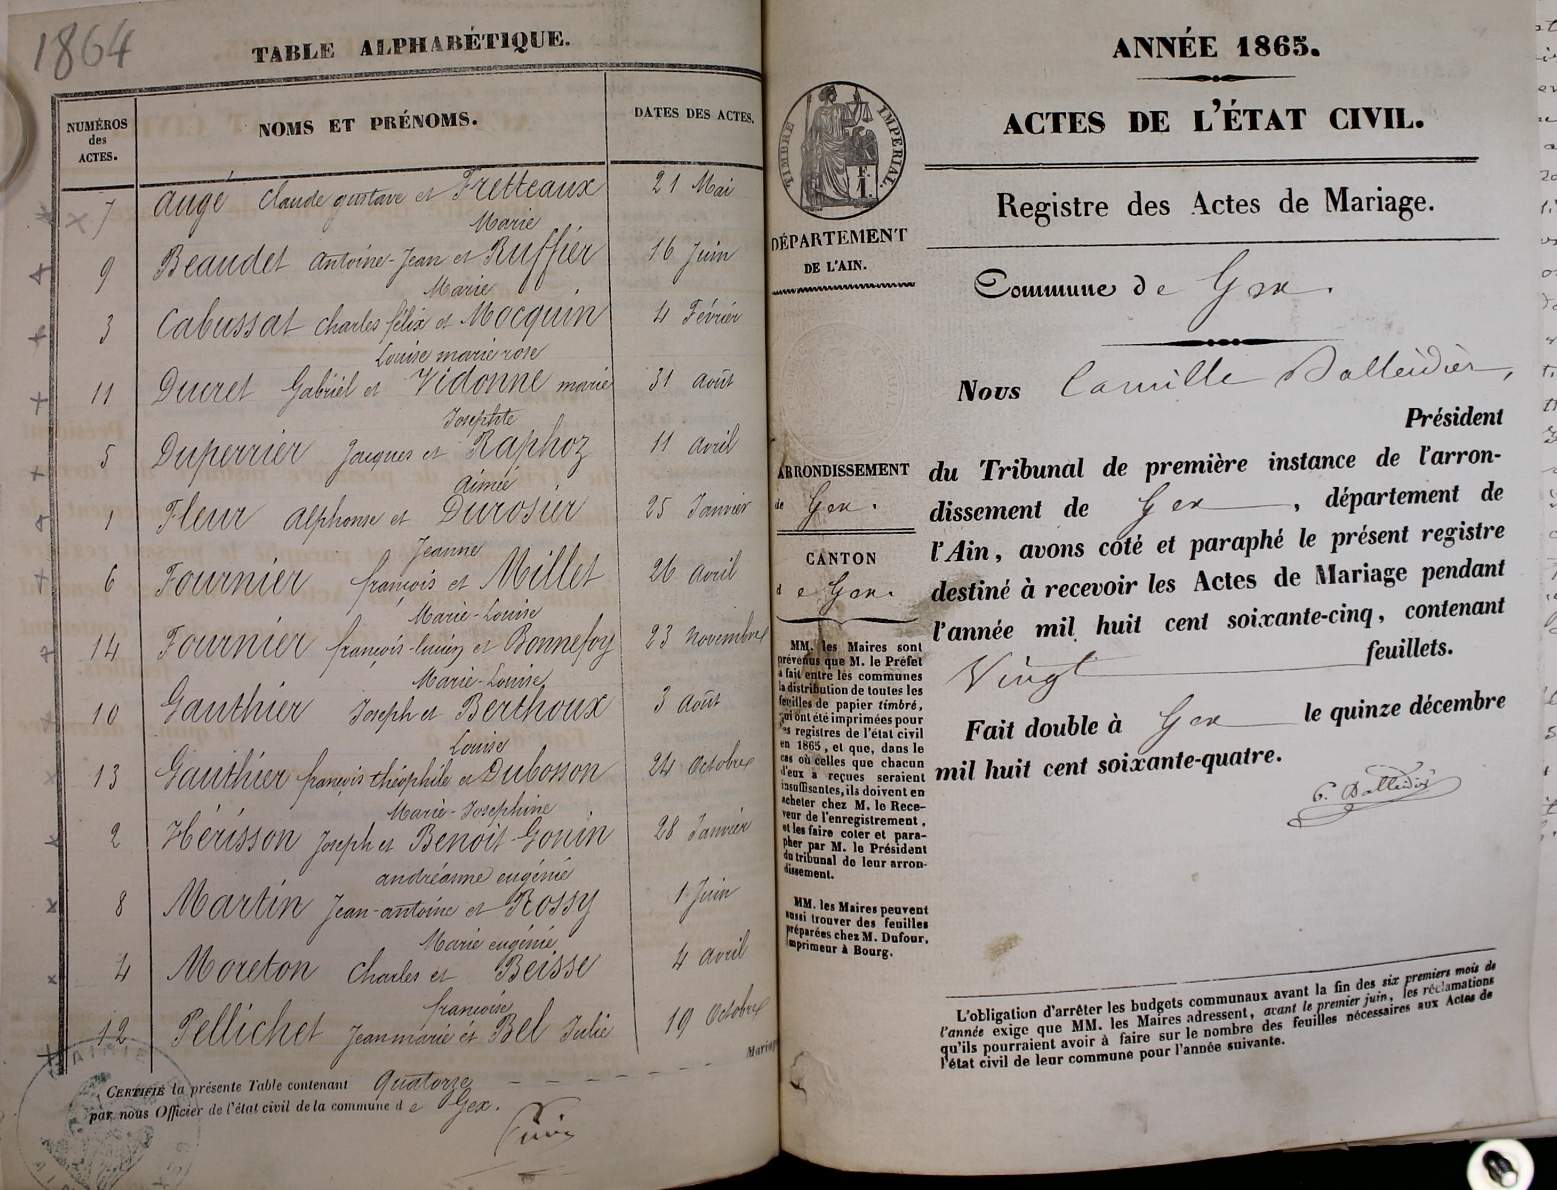 1864
TABLE ALPHABÉTIQUE.
NUMÉROS des ACTES.
NOMS ET PRÉNOMS.
DATES DES ACTES.
7 Augé Claude gustave et Fretteaux 21 Mai
Marie
9 Beaudet antoine-Jean et Ruffier 16 Juin
Marie
3 Cabussat Charles félix et Mocquin 4 Février
Louise marie rose
11 Ducret Gabriel et Vidonne marie 31 août
Josephte
5 Duperrier Jacques et Raphoz 11 avril
Aimée
1 Fleur alphonse et Durosier 25 Janvier
Jeanne
6 Fournier françois et Millet 26 avril
Marie-Louise
14 Fournier françois-lucien et Bonnefoy 23 novembre
Marie-Louise
10 Gauthier Joseph et Berthoux 3 août
Louise
13 Gauthier françois théophile et Dubosson 24 Octobre
Marie-Josephine
2 Hérisson Joseph et Benoit-Gonin 28 Janvier
andréanne eugénie
8 Martin Jean-antoine et Rossy 1 Juin
Marie eugénie
4 Moreton Charles et Beisse 4 avril
françoise
12 Pellichet Jeanmarie et Bel Julie 19 Octobre
Mariag
CERTIFIÉ la présente Table contenant quatorze
par nous Officier de l'état civil de la commune de Gex.
MAIRIE
TIMBRE IMPÉRIAL.
F. 1.
DÉPARTEMENT
DE L'AIN.
ARRONDISSEMENT
de Gex.
CANTON
de Gex.
MM. les Maires sont
prévenus que M. le Préfet
a fait entre les communes
la distribution de toutes les
feuilles de papier timbré,
qui ont été imprimées pour
les registres de l'état civil
en 1865, et que, dans le
cas où celles que chacun
d'eux a reçues seraient
insuffisantes, ils doivent en
acheter chez M. le Rece-
veur de l'enregistrement,
et les faire coter et para-
pher par M. le Président
du tribunal de leur arron-
dissement.
MM. les Maires peuvent
aussi trouver des feuilles
préparées chez M. Dufour,
imprimeur à Bourg.
ANNÉE 1865.
ACTES DE L'ÉTAT CIVIL.
Registre des Actes de Mariage.
Commune de Gex.
Nous Camille Balleidier,
Président
du Tribunal de première instance de l'arron-
dissement de Gex, département de
l'Ain, avons coté et paraphé le présent registre
destiné à recevoir les Actes de Mariage pendant
l'année mil huit cent soixante-cinq, contenant
Vingt feuillets.
Fait double à Gex le quinze décembre
mil huit cent soixante-quatre.
C. Balleidier
L'obligation d'arrêter les budgets communaux avant la fin des six premiers mois de
l'année exige que MM. les Maires adressent, avant le premier juin, les réclamations
qu'ils pourraient avoir à faire sur le nombre des feuilles nécessaires aux Actes de
l'état civil de leur commune pour l'année suivante.